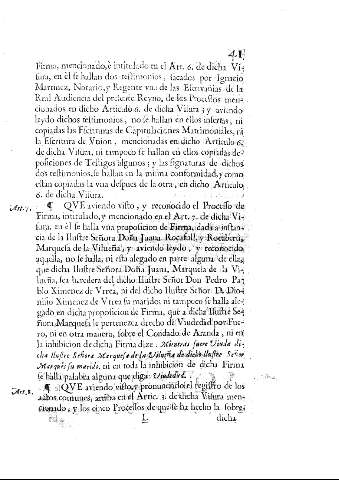 41
Firma, mencionado, è intitulado en el Art. 6. de dicha Vi-
sura, en èl se hallan dos testimonios, sacados por Ignacio
Martinez, Notario, y Regente vna de las Escrivanias de la
Real Audiencia del presente Reyno, de los Processos men-
cionados en dicho Articulo 6. de dicha Visura; y aviendo
leydo dichos testimonios, no se hallan en ellos insertas, ni
copiadas las Escrituras de Capitulaciones Matrimoniales, ni
la Escritura de Vnion, mencionadas en dicho Articulo 6.
de dicha Visura, ni tampoco se hallan en ellos copiadas de-
posiciones de Testigos algunos; y las signaturas de dichos
dos testimonios, se hallan en la misma conformidad, y como
estàn copiadas la vna despues de la otra, en dicho Articulo
6. de dicha Visura.
Art. 7. ¶ QVE aviendo visto, y reconocido el Processo de
Firma, intitulado, y mencionado en el Art. 7. de dicha Vi-
sura, en èl se halla vna proposicion de Firma, dada à instan-
cia de la Ilustre Señora Doña Juana Rocafull, y Rocaberti,
Marquesa de la Vilueña, y aviendo leydo, y reconocido
aquella, no se halla, ni està alegado en parte alguna de ella,
que dicha Ilustre Señora Doña Juana, Marquesa de la Vi-
lueña, sea heredera del dicho Ilustre Señor Don Pedro Pa-
blo Ximenez de Vrrea, ni del dicho Ilustre Señor D. Dios-
niño Ximenez de Vrrea su marido; ni tampoco se halla ale-
gado en dicha proposicion de Firma, que à dicha Ilustre Se-
ñora Marquesa le pertenezca derecho de Viudedad por Fue-
ro, ni en otra manera, sobre el Condado de Aranda, ni en
la inhibicion de dicha Firma dize: Mientras fuere Viuda di-
cha Ilustre Señora Marquesa de la Vilueña de dicho Ilustre Señor
Marquès su marido, ni en toda la inhibicion de dicha Firma
se halla palabra alguna que diga: Viudedad.
Art. 8. ¶ QVE aviendo visto, y pronunciado el registro de los
actos comunes, arriba en el Artic. 3. de dicha Visura men-
cionado, y los cinco Processos de que se ha hecho la sobre-
L dicha